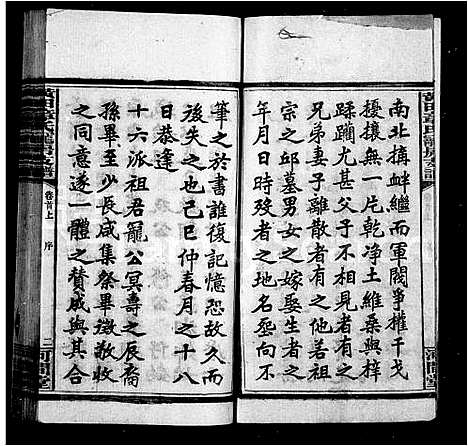 南北搆衅繼而軍閥爭權干戈
擾攘無一片乾淨土維桑與梓
蹂躪尤甚父子不相見者有之
兄弟妻子離散者有之他若祖
宗之邱墓男女之嫁娶生者之
年月日時歿者之地名㞷向不
筆之於書誰復記憶恐故有今
後失之也己巳仲春月之十八
日恭逢
十六派祖君龍公冥壽之辰裔
孫畢至少長咸集祭畢徵敬收
之同意遂一體之贊成與其合
卷首上
序
二河間堂